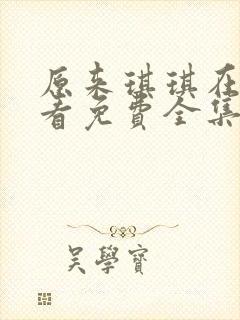 原来琪琪在
看免费全集
吴學寶